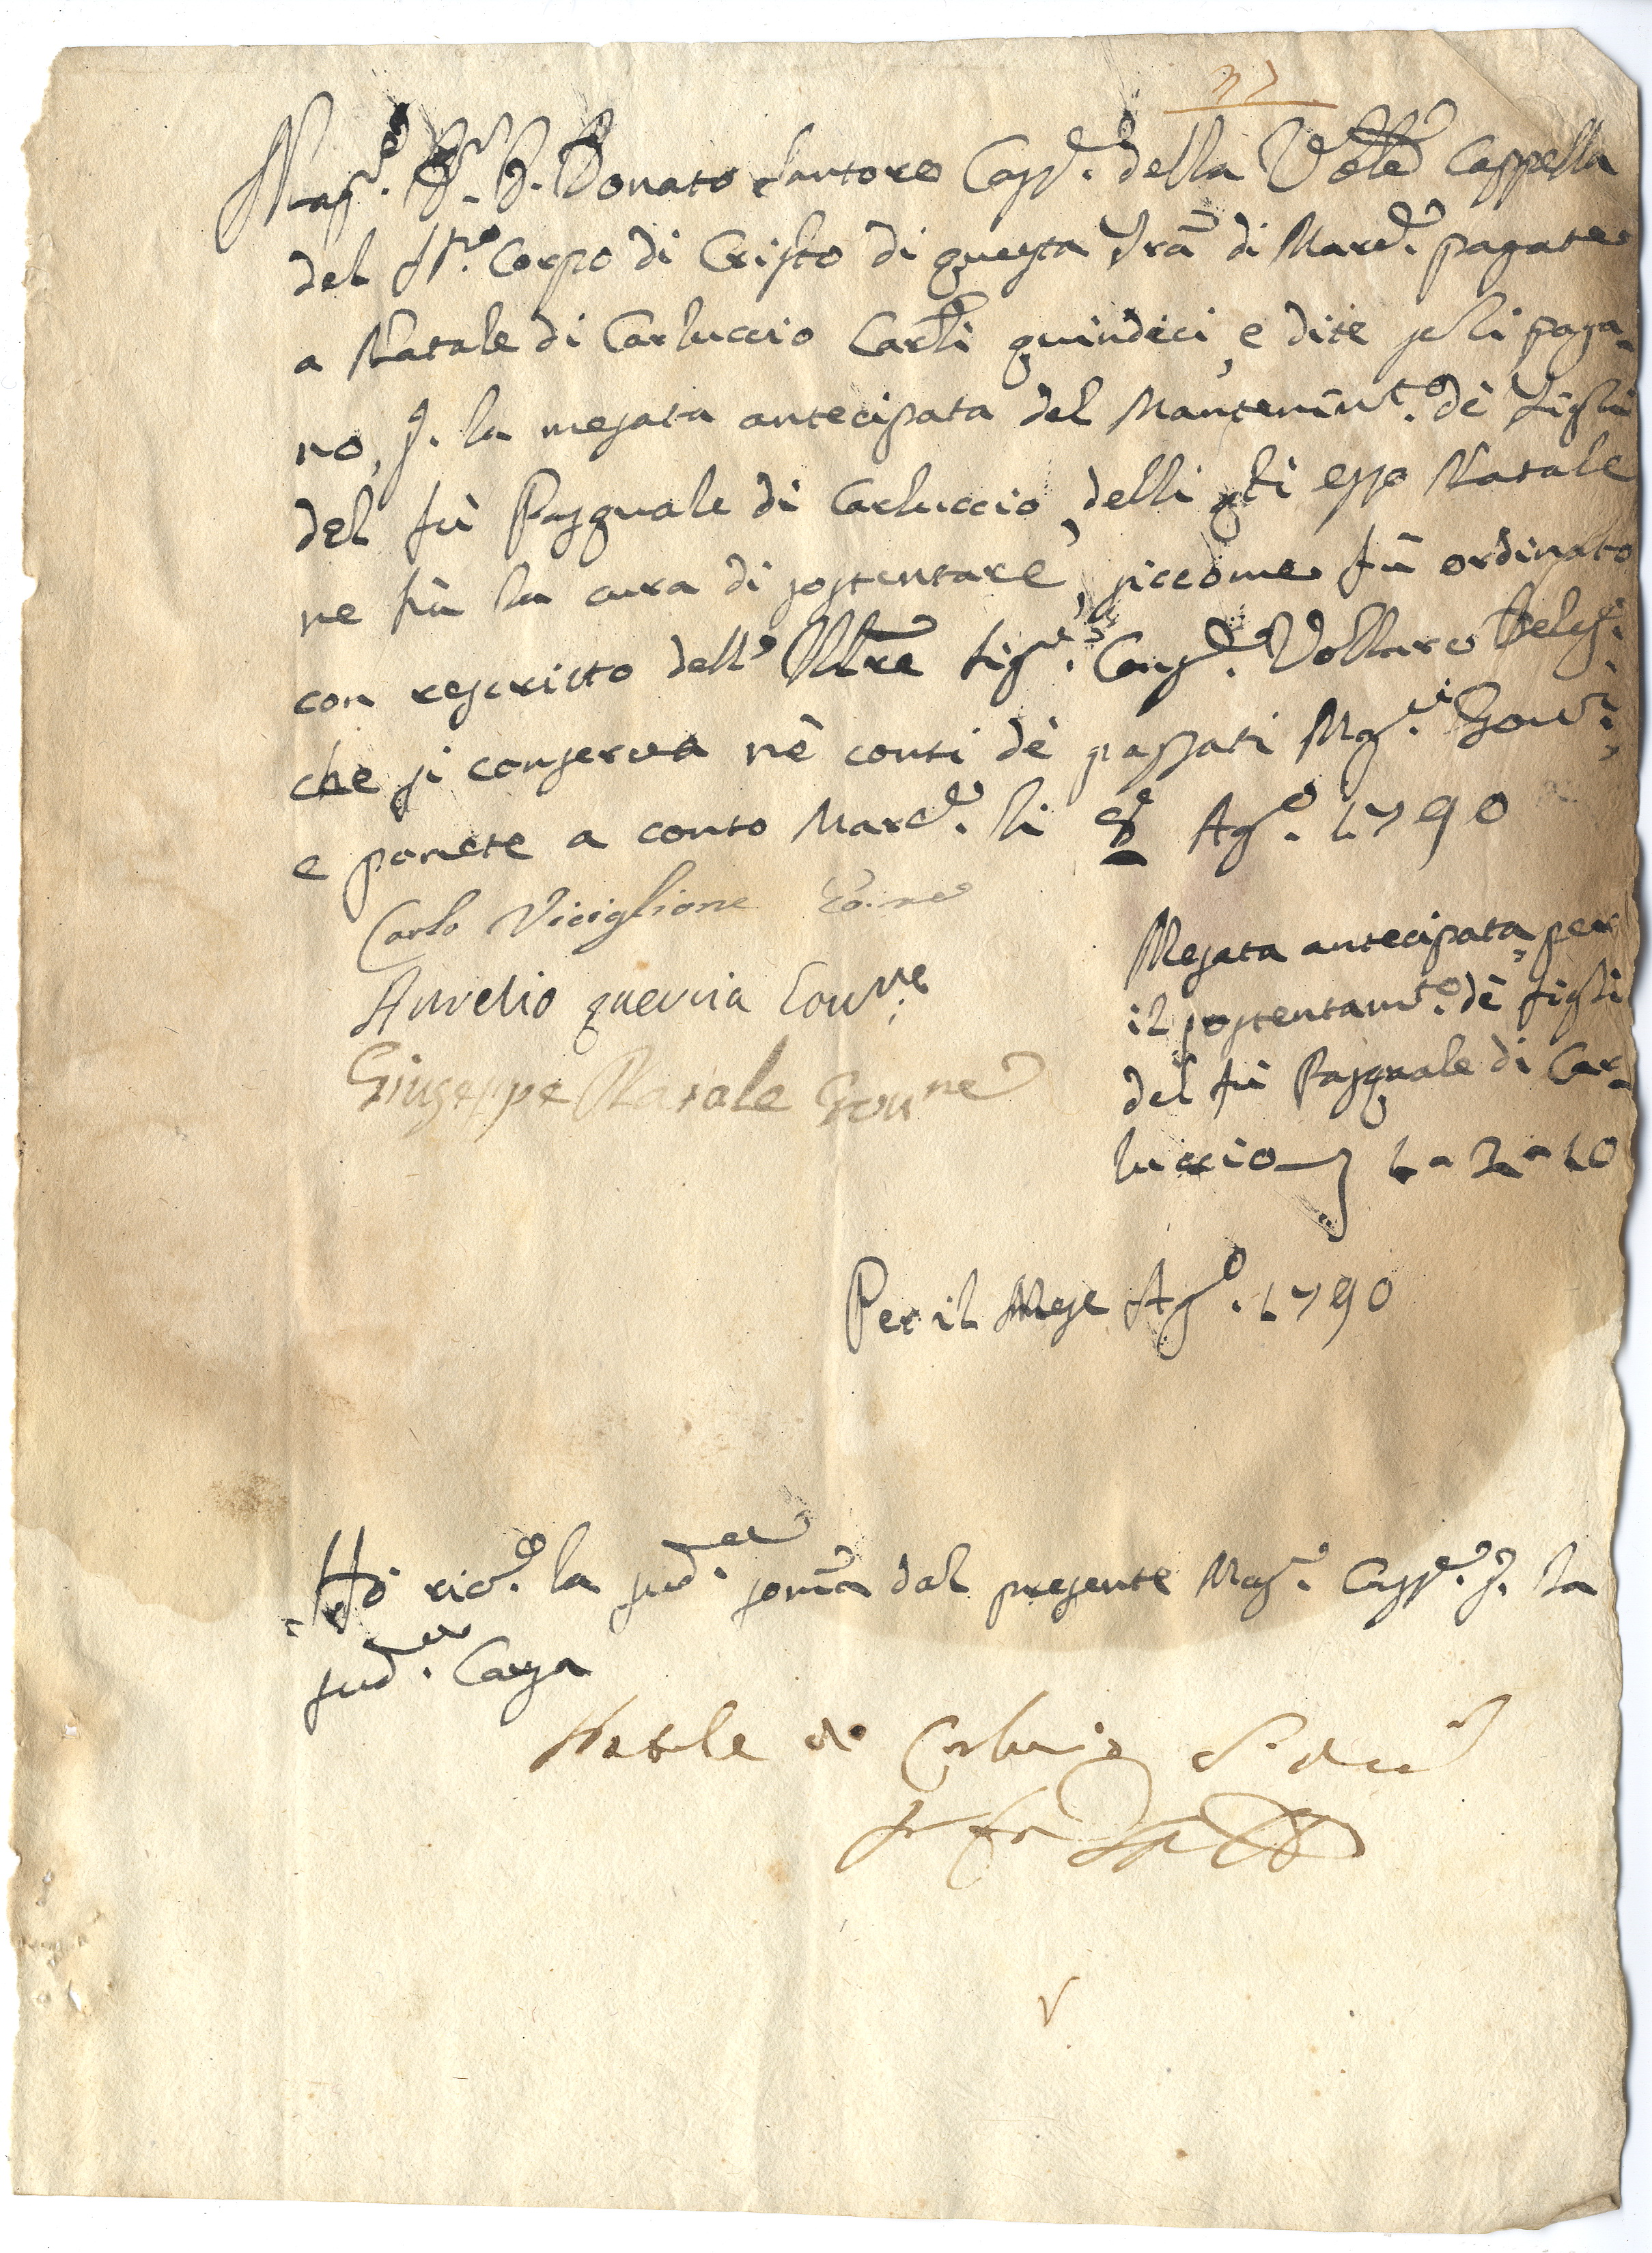 37
Mag.co Sr. D. Donato Santoro Capp.e della Vble Cappella
del SS.mo Corpo di Cristo di questa Tra di Mard.e pagate
a Natale di Carluccio Carli quindeci, e dite se li paga-
no, p. la mesata antecipata del Mantenimt.o dè figli
del fù Pasquale di Carluccio, delli qli esso Natale
ne hà la cura di sostentare, siccome fù ordinato
con rescritto dell' Illre Sig.r Consig.e Vollaro Deleg.
che si conserva nè conti dè passati Mag.ci Gov.ri
e ponete a conto Mard.e li 8 Ag.o 1790
Carlo Viciglione Go.ne
Aurelio quercia Gov.ne
Giuseppe Natale Gou.ne
Mesata antecipata per
il sostentamt.o dè figli
del fù Pasquale di Car-
luccio 1 - 2 - 10
Per il Mese Ag.o 1790
Hò ric.o la sud.a soma dal presente Mag.co Capp.e p. la
sud.a Causa
Natale di Carluccio